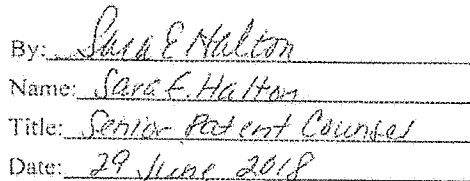 By: Sara E Halton
Name: Sara E. Halton
Title: Senior Patent Counsel
Date: 29 June 2018